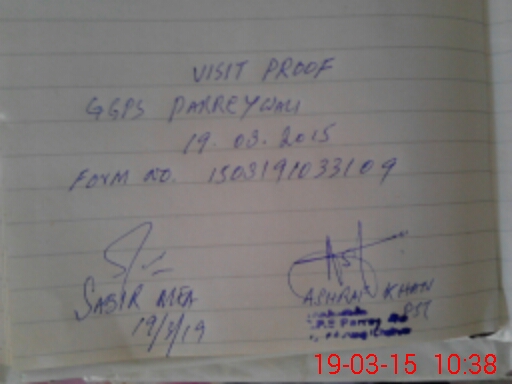 VISIT PROOF
GGPS PARREYWALI
19.03.2015
FORM NO. 1503191033109
SABIR MEA
19/3/19
ASHRAF KHAN
PST
19-03-15 10:38